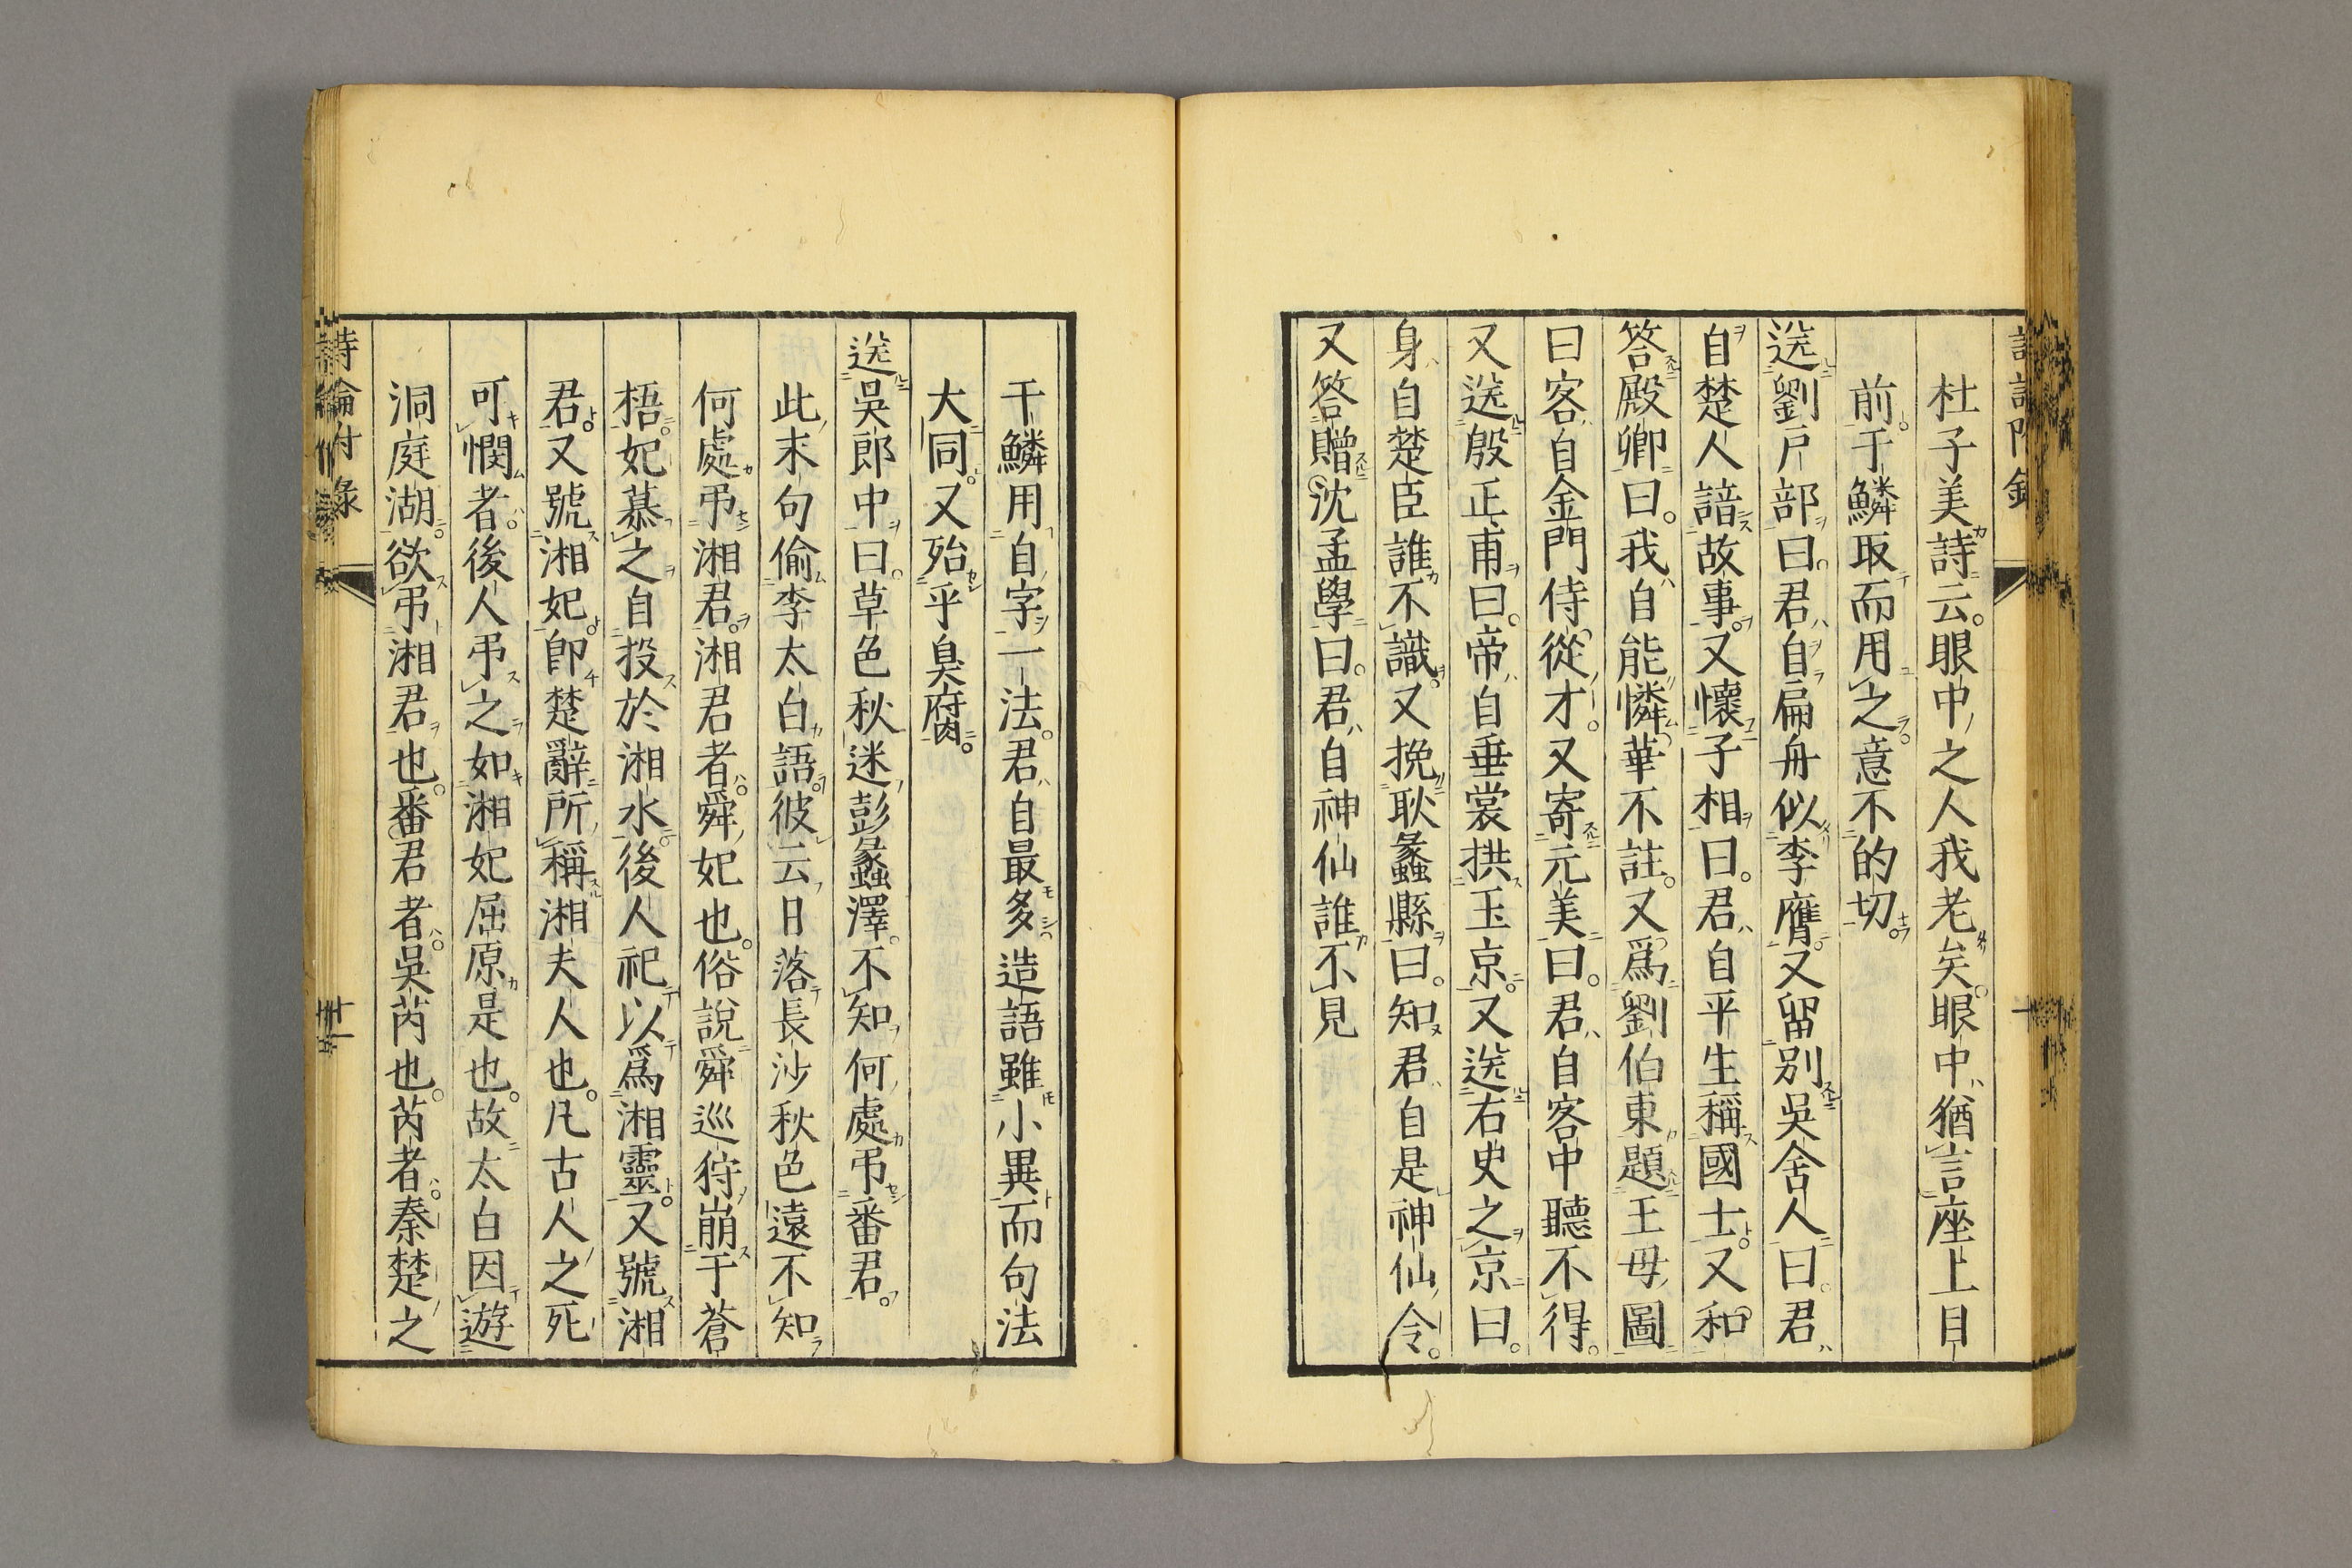 杜子美詩云。眼中之人我老矣。眼中猶言座上目
前。于鱗取而用之。意不的切。
送劉戸部曰。君自扁舟似李膺。又留別吳舍人曰。君
自楚人諳故事。又懷子相曰。君自平生稱國士。又和
答殿卿曰。我自能憐華不註。又爲劉伯東題王母圖
曰客自金門侍從才。又寄元美曰。君自客中聽不得。
又送殷正甫曰。帝自垂裳拱玉京。又送右史之京曰。
身自楚臣誰不識。又挽耿蠡縣曰。知君自是神仙令。
又答贈沈孟學曰。君自神仙誰不見
于鱗用自字一法。君自最多。造語雖小異而句法
大同。又殆乎臭腐。
送吳郎中曰。草色秋迷彭蠡澤。不知何處弔番君。
此末句偷李太白語。彼云日落長沙秋色遠不知
何處弔湘君。湘君者。舜妃也。俗說舜巡狩崩于蒼
梧。妃慕之自投於湘水。後人祀以爲湘靈。又號湘
君。又號湘妃。卽楚辭所稱湘夫人也。凡古人之死
可憫者。後人弔之。如湘妃屈原是也。故太白因遊
洞庭湖。欲弔湘君也。番君者。吳芮也。芮者。秦楚之
詩論付錄